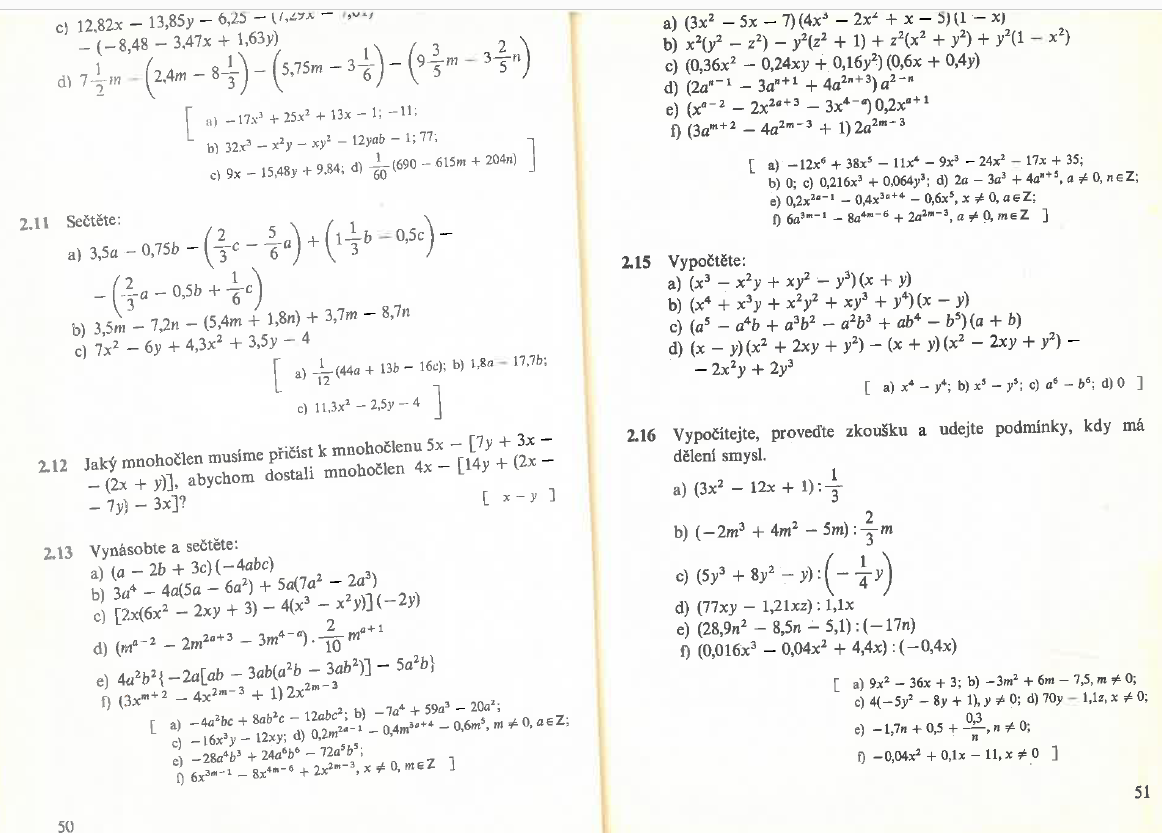 c) 12,82x − 13,85y − 6,25 − (7,29x −
− (−8,48 − 3,47x + 1,63y)
d) 7 1/2 m − (2,4m − 8 1/3) − (5,75m − 3 1/6) − (9 3/5 m − 3 2/5 n)
[ a) −17x³ + 25x² + 13x − 1; −11;
b) 32x³ − x²y − xy² − 12yab − 1; 77;
c) 9x − 15,48y + 9,84; d) 1/60 (690 − 615m + 204n) ]
2.11 Sečtěte:
a) 3,5a − 0,75b − (2/3 c − 5/6 a) + (1 1/3 b − 0,5c) −
− (2/3 a − 0,5b + 1/6 c)
b) 3,5m − 7,2n − (5,4m + 1,8n) + 3,7m − 8,7n
c) 7x² − 6y + 4,3x² + 3,5y − 4
[ a) 1/12 (44a + 13b − 16c); b) 1,8a − 17,7b;
c) 11,3x² − 2,5y − 4 ]
2.12 Jaký mnohočlen musíme přičíst k mnohočlenu 5x − [7y + 3x −
− (2x + y)], abychom dostali mnohočlen 4x − [14y + (2x −
− 7y) − 3x]? [ x − y ]
2.13 Vynásobte a sečtěte:
a) (a − 2b + 3c)(−4abc)
b) 3a⁴ − 4a(5a − 6a²) + 5a(7a² − 2a³)
c) [2x(6x² − 2xy + 3) − 4(x³ − x²y)](−2y)
d) (mᵃ⁻² − 2m²ᵃ⁺³ − 3m⁴⁻ᵃ) . 2/10 mᵃ⁺¹
e) 4a²b²{−2a[ab − 3ab(a²b − 3ab²)] − 5a²b}
f) (3xᵐ⁺² − 4x²ᵐ⁻³ + 1)2x²ᵐ⁻³
[ a) −4a²bc + 8ab²c − 12abc²; b) −7a⁴ + 59a³ − 20a²;
c) −16x³y − 12xy; d) 0,2m²ᵃ⁻¹ − 0,4m³ᵃ⁺⁴ − 0,6m⁵, m ≠ 0, a∈Z;
e) −28a⁴b³ + 24a⁶b⁶ − 72a⁵b⁵;
f) 6x³ᵐ⁻¹ − 8x⁴ᵐ⁻⁶ + 2x²ᵐ⁻³, x ≠ 0, m∈Z ]
50
a) (3x² − 5x − 7)(4x³ − 2x² + x − 5)(1 − x)
b) x²(y² − z²) − y²(z² + 1) + z²(x² + y²) + y²(1 − x²)
c) (0,36x² − 0,24xy + 0,16y²)(0,6x + 0,4y)
d) (2aⁿ⁻¹ − 3aⁿ⁺¹ + 4a²ⁿ⁺³)a²⁻ⁿ
e) (xᵃ⁻² − 2x²ᵃ⁺³ − 3x⁴⁻ᵃ)0,2xᵃ⁺¹
f) (3aᵐ⁺² − 4a²ᵐ⁻³ + 1)2a²ᵐ⁻³
[ a) −12x⁶ + 38x⁵ − 11x⁴ − 9x³ − 24x² − 17x + 35;
b) 0; c) 0,216x³ + 0,064y³; d) 2a − 3a³ + 4aⁿ⁺⁵, a ≠ 0, n∈Z;
e) 0,2x²ᵃ⁻¹ − 0,4x³ᵃ⁺⁴ − 0,6x⁵, x ≠ 0, a∈Z;
f) 6a³ᵐ⁻¹ − 8a⁴ᵐ⁻⁶ + 2a²ᵐ⁻³, a ≠ 0, m∈Z ]
2.15 Vypočtěte:
a) (x³ − x²y + xy² − y³)(x + y)
b) (x⁴ + x³y + x²y² + xy³ + y⁴)(x − y)
c) (a⁵ − a⁴b + a³b² − a²b³ + ab⁴ − b⁵)(a + b)
d) (x − y)(x² + 2xy + y²) − (x + y)(x² − 2xy + y²) −
− 2x²y + 2y³
[ a) x⁴ − y⁴; b) x⁵ − y⁵; c) a⁶ − b⁶; d) 0 ]
2.16 Vypočítejte, proveďte zkoušku a udejte podmínky, kdy má
dělení smysl.
a) (3x² − 12x + 1) : 1/3
b) (−2m³ + 4m² − 5m) : 2/3 m
c) (5y³ + 8y² − y) : (−1/4 y)
d) (77xy − 1,21xz) : 1,1x
e) (28,9n² − 8,5n − 5,1) : (−17n)
f) (0,016x³ − 0,04x² + 4,4x) : (−0,4x)
[ a) 9x² − 36x + 3; b) −3m² + 6m − 7,5, m ≠ 0;
c) 4(−5y² − 8y + 1), y ≠ 0; d) 70y − 1,1z, x ≠ 0;
e) −1,7n + 0,5 + 0,3/n, n ≠ 0;
f) −0,04x² + 0,1x − 11, x ≠ 0 ]
51